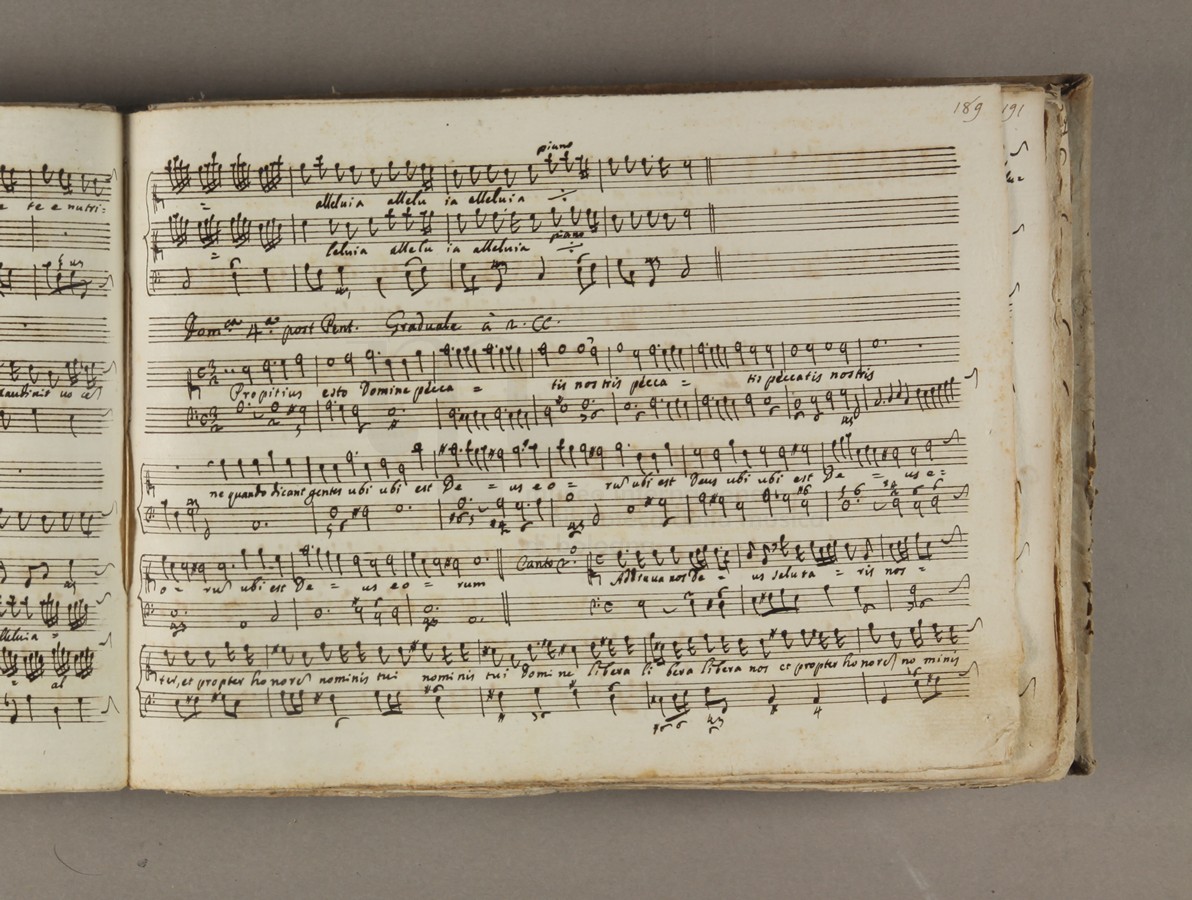 189 191
piano
alleluia allelu ia alleluia
leluia allelu ia alleluia piano
Dom.ca 4.a post Pent. Graduale à 2. CC.
Propitius esto Domine pecca = tis nostris pecca = tis peccatis nostris
ne quando dicant gentes ubi ubi est De = us eo = rum ubi est Deus ubi ubi est De = us e=
o = rum ubi est De = us eo = rum Canto 2.º Adiuva nos De = us saluta = ris nos =
ter, et propter honorem nominis tui nominis tui Domine libera li bera libera nos et propter honorem nominis
te e nutri=
alleluia =
al